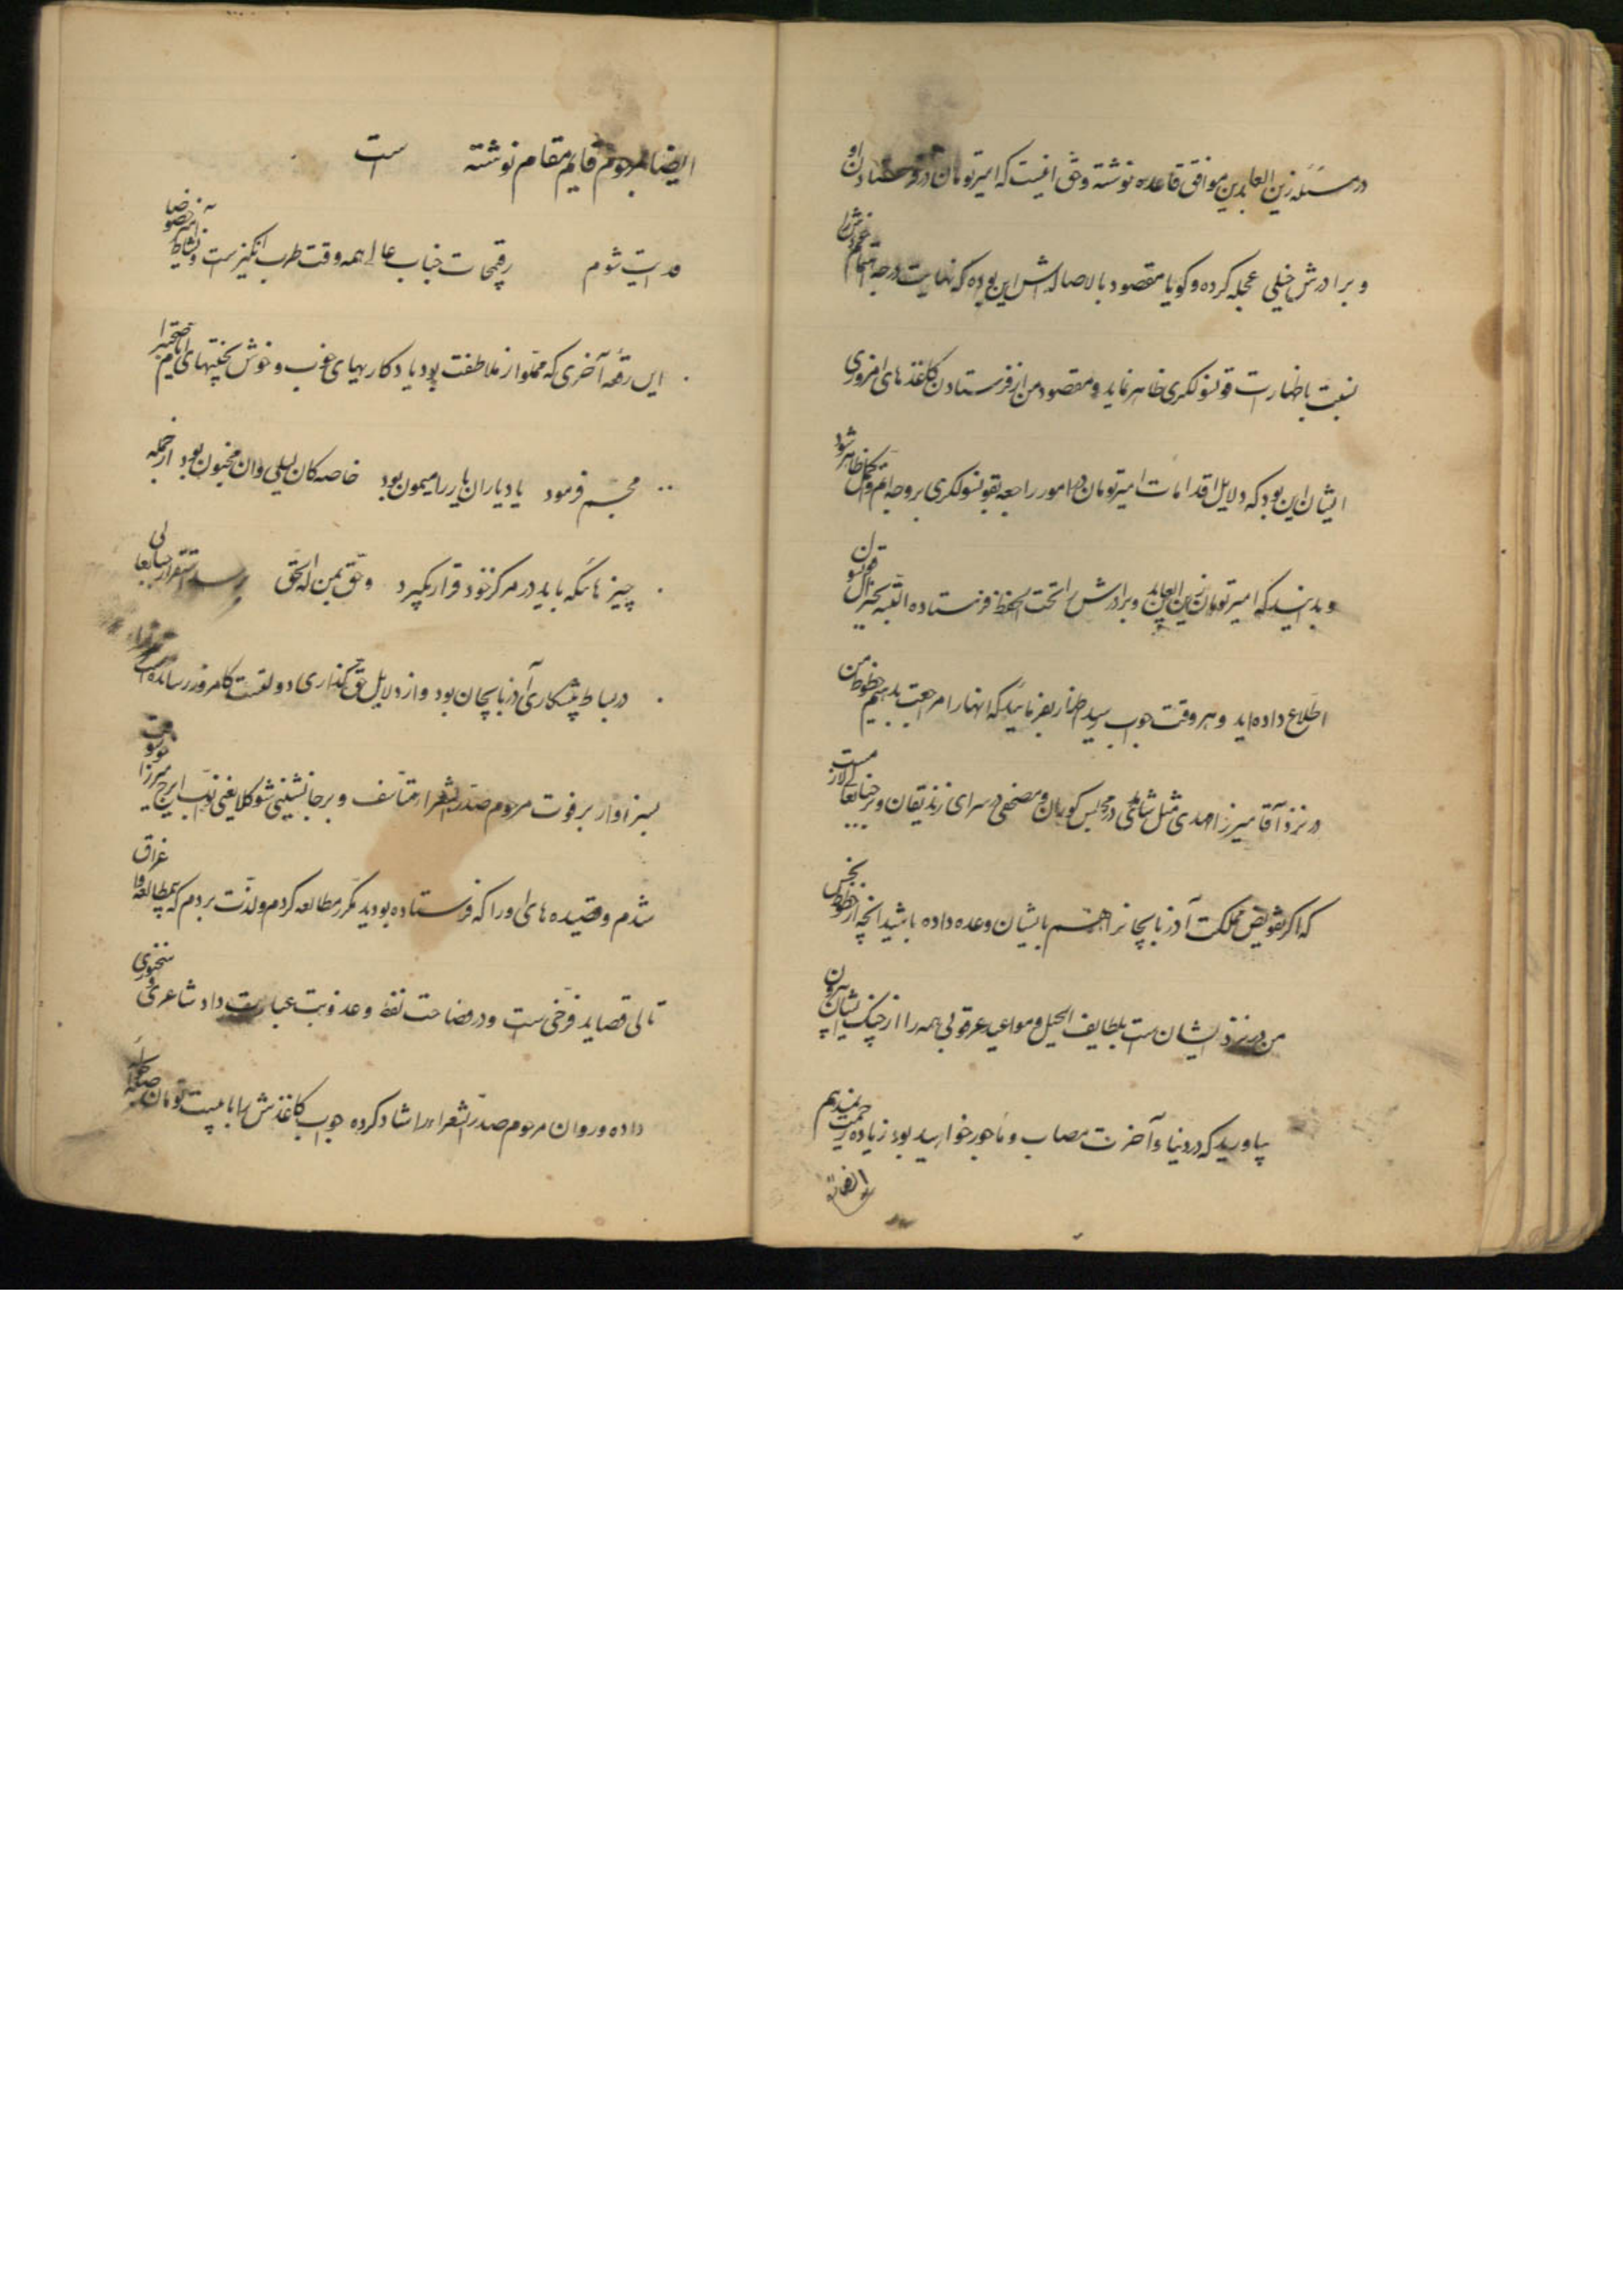 در مسئله زین العابدین موافق قاعده نوشته و حق اینست که امیر تومان در فرستادن او
و برادرش خیلی عجله کرده و گویا مقصود بالاصاله اش این بوده که نهایت درجه اهتمام خودش را
نسبت باظهارات قونسولگری ظاهر نماید و مقصود من از فرستادن کاغذهای امروزی
ایشان این بود که دلایل اقدامات امیر تومان در امور راجعه بقونسولگری بر وجه اتم و اکمل ظاهر شود
و بدانید که امیر تومان زین العابدین و برادرش را تحت الحفظ فرستاده البته بجنرال قونسول
اطلاع داده اید و هر وقت جواب رسید اظهار بفرمائید که آنها را مرجعت بدهیم خطوط من
در نزد آقا میرزا مهدی مثل شاهدی در مجلس کوران و مصحفی در سرای زندیقان و بر جنابعالی لازمست
که اگر تفویض مملکت آذربایجانرا هم بایشان وعده داده باشید آنچه از خطوط نحس
من در نزد ایشان است بلطایف الحیل و مواعید عرقوبی همه را از چنگ ایشان بیرون
بیاورید که در دنیا و آخرت مصاب و ماجور خواهید بود زیاده زحمت نمیدهم
ایضا بمرحوم قایم مقام نوشته است
فدایت شوم رقیمجات جناب عالی همه وقت طرب انگیز است و نشاط آمیز خصوصا
این رقعه آخری که مملو از ملاطفت بود یادگاریهای خوب و خوش بختیهای ایام تبخیر را
مجسم فرمود یاد یاران یار را میمون بود خاصه کان لیلی و این مجنون بود از جمله
چیزهائیکه باید در مرکز خود قرار بگیرد و حق بمن له الحق برسد استقرار جنابعالی
در بساط پیشکاری آذربایجان بود و از دلایل حق گذاری دولتست که امروز رسانده است
بسزاوار بر فوت مرحوم صدر الشعرا متأسف و بر جانشینی شوکلا یعنی نواب ایرج میرزا
شدم و قصیده های او را که فرستاده بودید مکرر مطالعه کردم و لذت بردم که بمطالعه
تالی قصاید فرخی است و در فصاحت لفظ و عذوبت عبارت داد شاعری و سخنوری
داده و روان مرحوم صدر الشعراء را شاد کرده جواب کاغذش را با بیست تومان صله